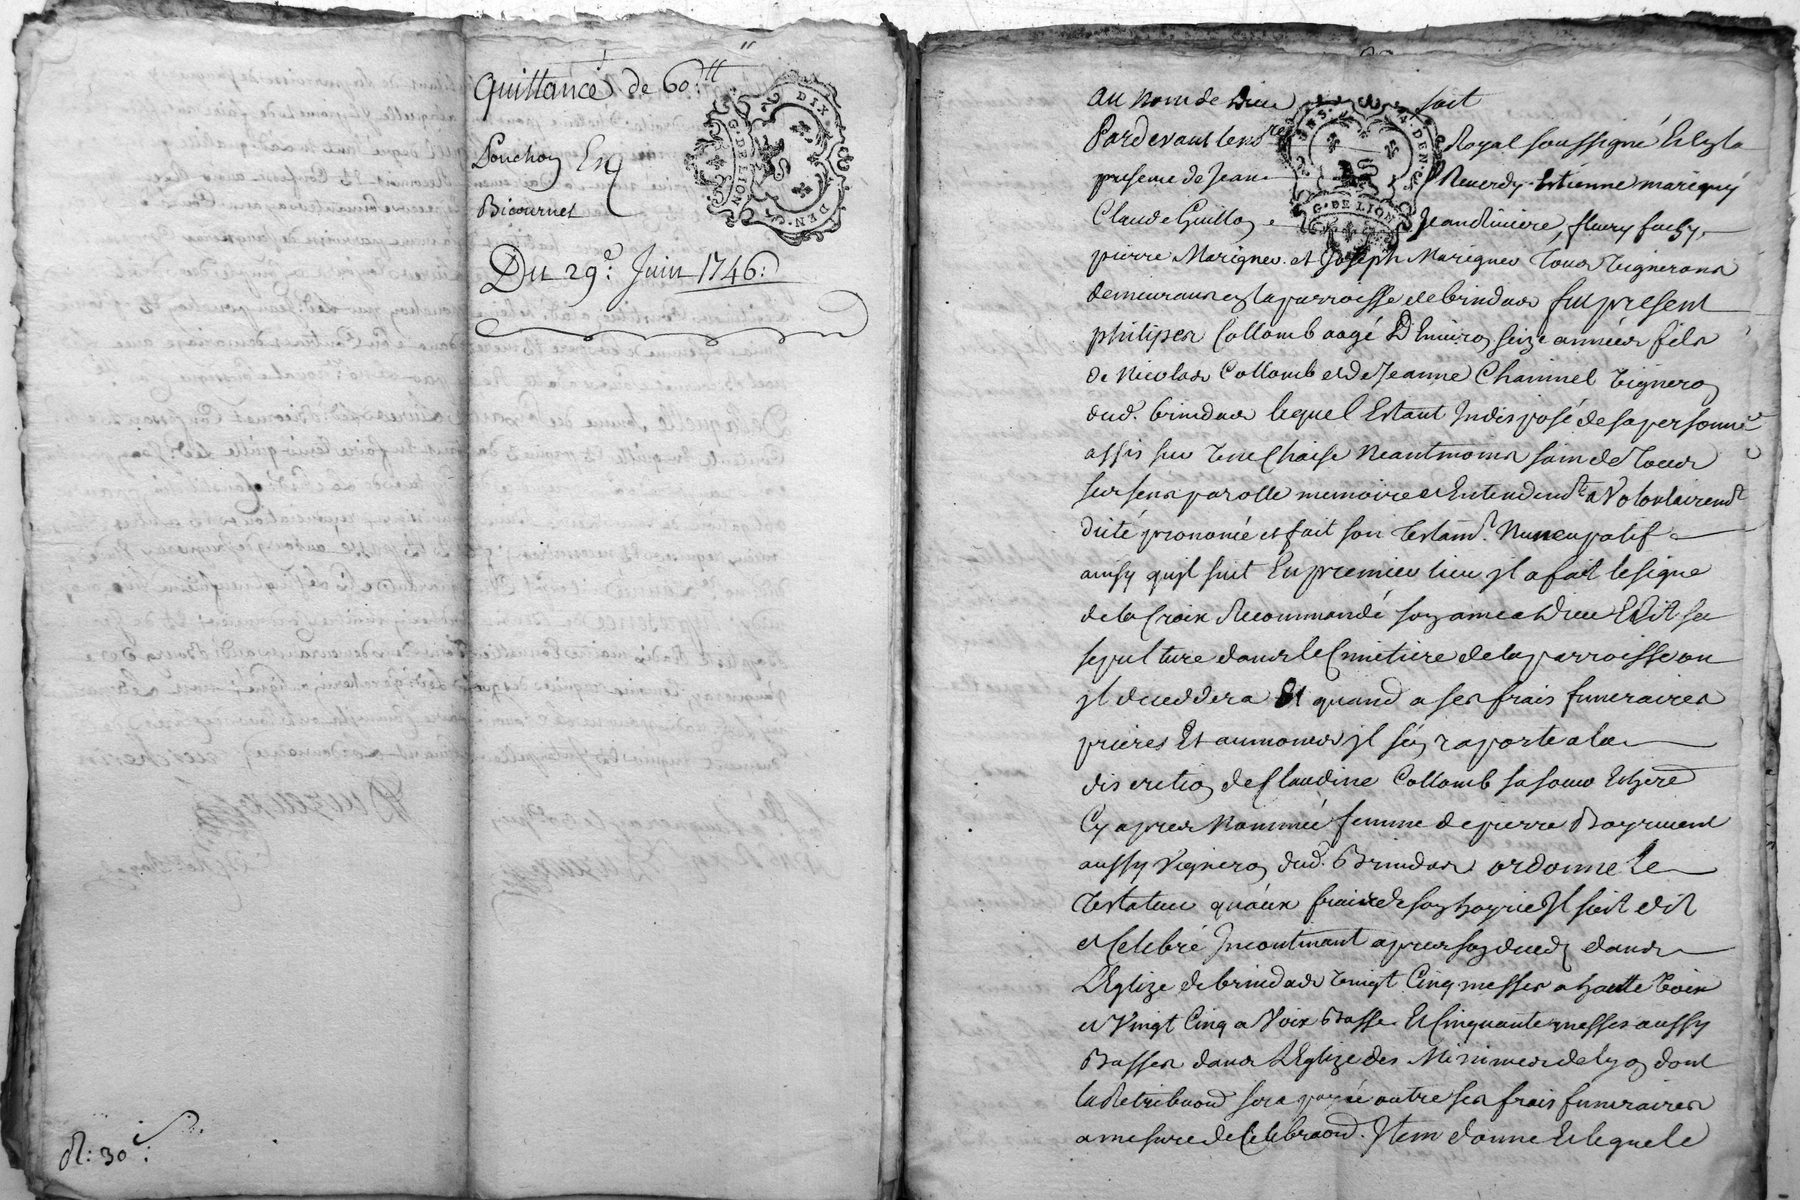 Quittance de 60:tt
Ponchon En
Bicournet
Du 29e. Juin 1746:
R: 30s:
DIX
DEN.
G. DE LION
Au Nom de Dieu soit
Pardevant le no.re Royal soussigné Et En la
presence de Jean Reverdy Estienne marigny
Claude Guillon Jean Riviere, fleury
pierre Marignes et Joseph Marignes Tous Vignerons
demeurans En la parroisse de brindas fut present
philipes Collomb aagé D'Environ seize années fils
de Nicolas Collomb et de Jeanne Chaninel Vigneron
dud. brindas lequel Estant Indisposé de sa personne
assis sur Une Chaise Neantmoins sain de Tous
ses sens parolle memoire et Entendemt. a Volontairemt
dicté prononcé et fait son Testamt. Nuncupatif
ainsy quil suit En premier lieu jl a fait le signe
de la Croix Recommandé son ame a Dieu Elût sa
sepulture dans le Cimetiere de la parroisse ou
jl deceddera Et quand a ses frais funeraires
prieres Et aumones jl s'en raporte a la
discretion de Claudine Collomb sa soeur Et here
Cy apres Nommée femme de pierre Bayrment
aussy Vigneron dud. Brindas ordonne le
Testateur quaux frais de son hoyrie Il soit dit
et Celebré Incontinant apres son deced dans
L'Eglize de brindas Vingt Cinq messes a haute Voix
et Vingt Cinq a Voix Basse Et Cinquante messes aussy
Basses dans L'Eglize des Minimes de lyon dont
la Retribuon sera payée outre ses frais funeraires
a mesure de Celebraon. Item donne Et legue le
4. DEN.
G. DE LION